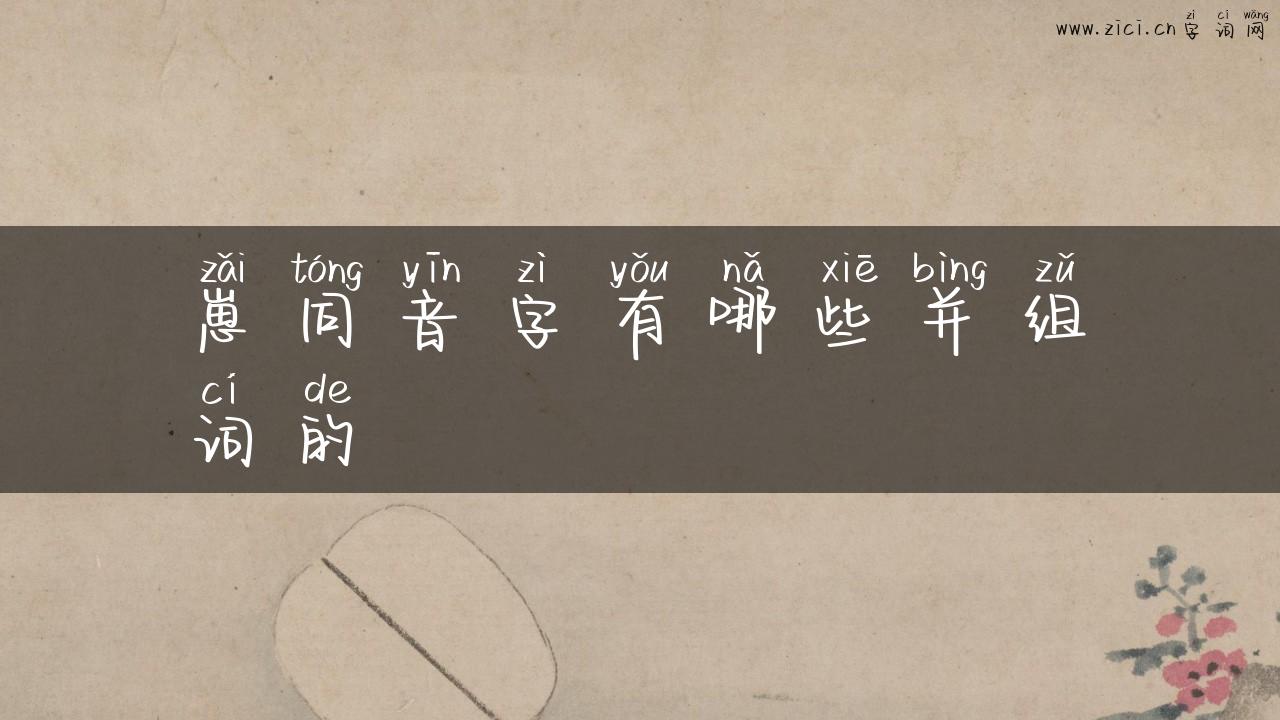 zì cí wǎng
www.zici.cn 字 词 网
zǎi tóng yīn zì yǒu nǎ xiē bìng zǔ
崽 同 音 字 有 哪 些 并 组
cí de
词 的